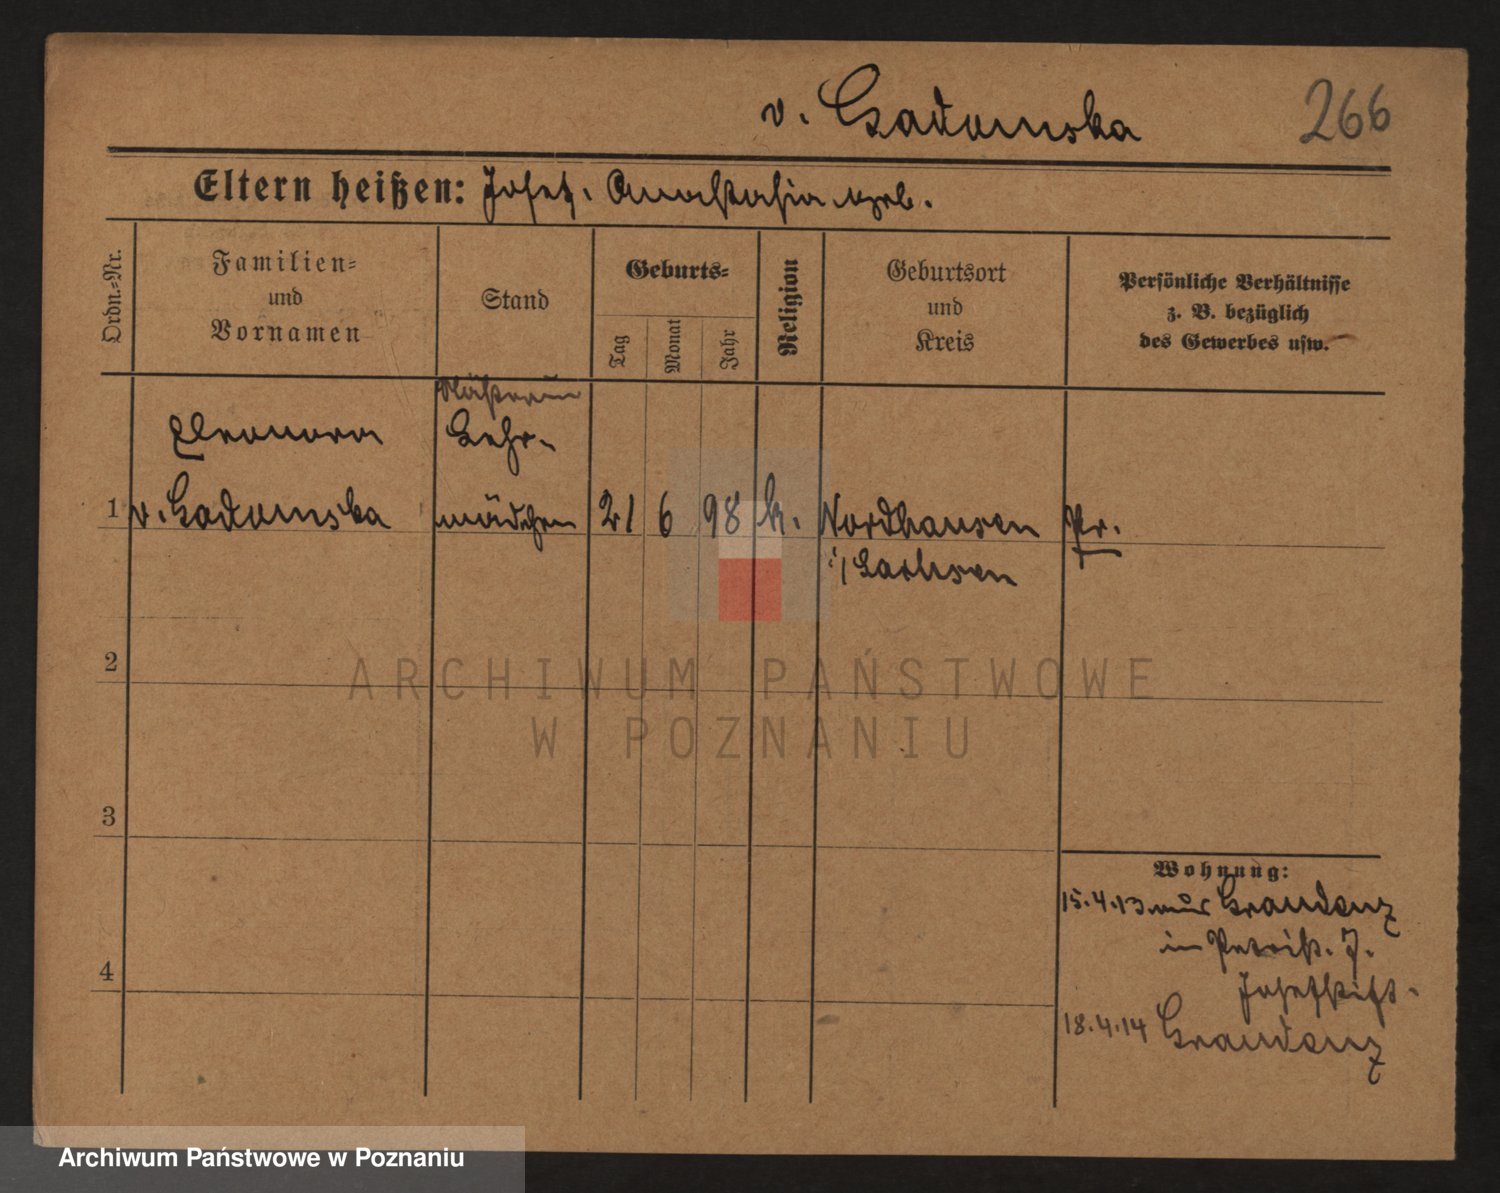 v. Gadomska 266
Eltern heißen: Josef. Anastasia geb.
Ordn.-Nr.
Familien-
und
Vornamen
Stand
Geburts-
Tag
Monat
Jahr
Religion
Geburtsort
und
Kreis
Persönliche Verhältnisse
z. B. bezüglich
des Gewerbes usw.
Eleonora Lehr-
1 v. Gadomska mädchen 21 6 98 k. Nordhausen Pr.
i/Sachsen
2
3
4
Wohnung:
15.4.13 aus Graudenz
in Petristr. 7.
Josefstift.
18.4.14 Graudenz
ARCHIWUM PAŃSTWOWE
W POZNANIU
Archiwum Państwowe w Poznaniu